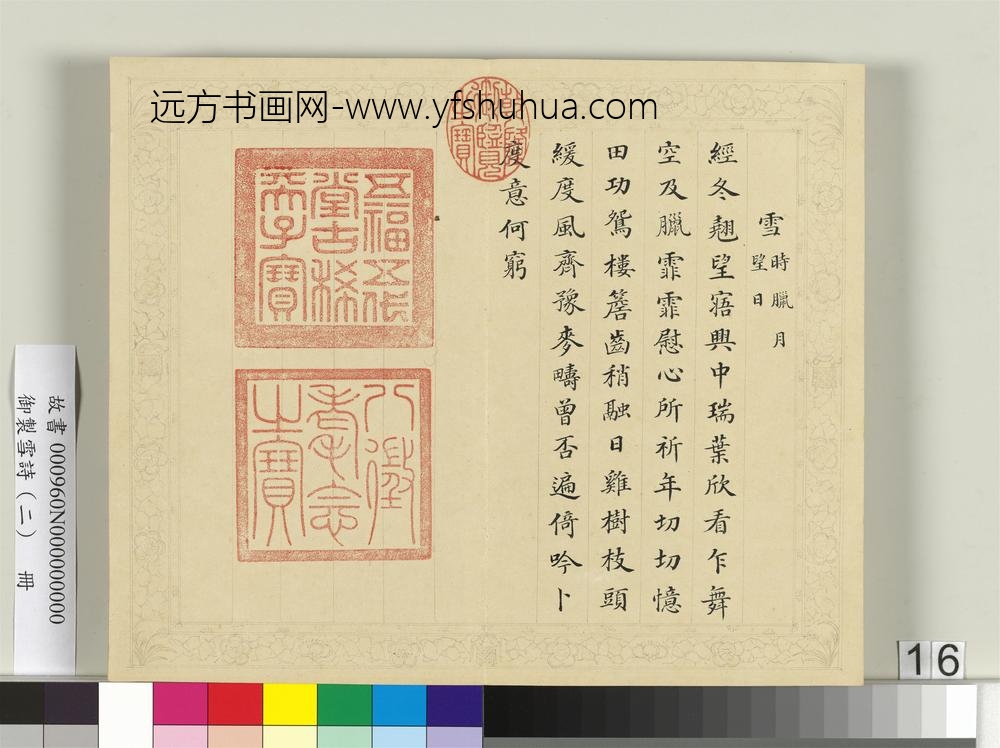 远方书画网-www.yfshuhua.com
雪時臘月
望日
經冬翹望寤興中瑞葉欣看乍舞
空及臘霏霏慰心所祈年切切憶
田功鴛樓簷齒稍融日雞樹枝頭
緩度風齊豫麥疇曾否遍倚吟卜
度意何窮
乾隆御覽之寶
五福五代
堂古稀
天子寶
八徵
耄念
之寶
故書 000960N000000000
御製雪詩(二) 冊
16